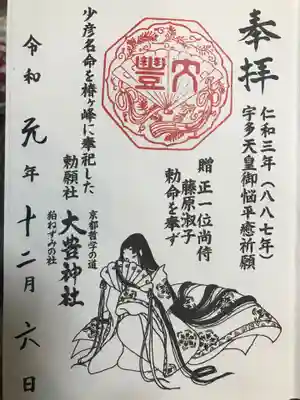 奉拝
仁和三年(八八七年)
宇多天皇御悩平癒祈願
贈 正一位尚侍
藤原淑子
勅命を奉ず
大豐
少彦名命を椿ヶ峰に奉祀した
勅願社
京都哲学の道
狛ねずみの社
大豊神社
令和元年十二月六日